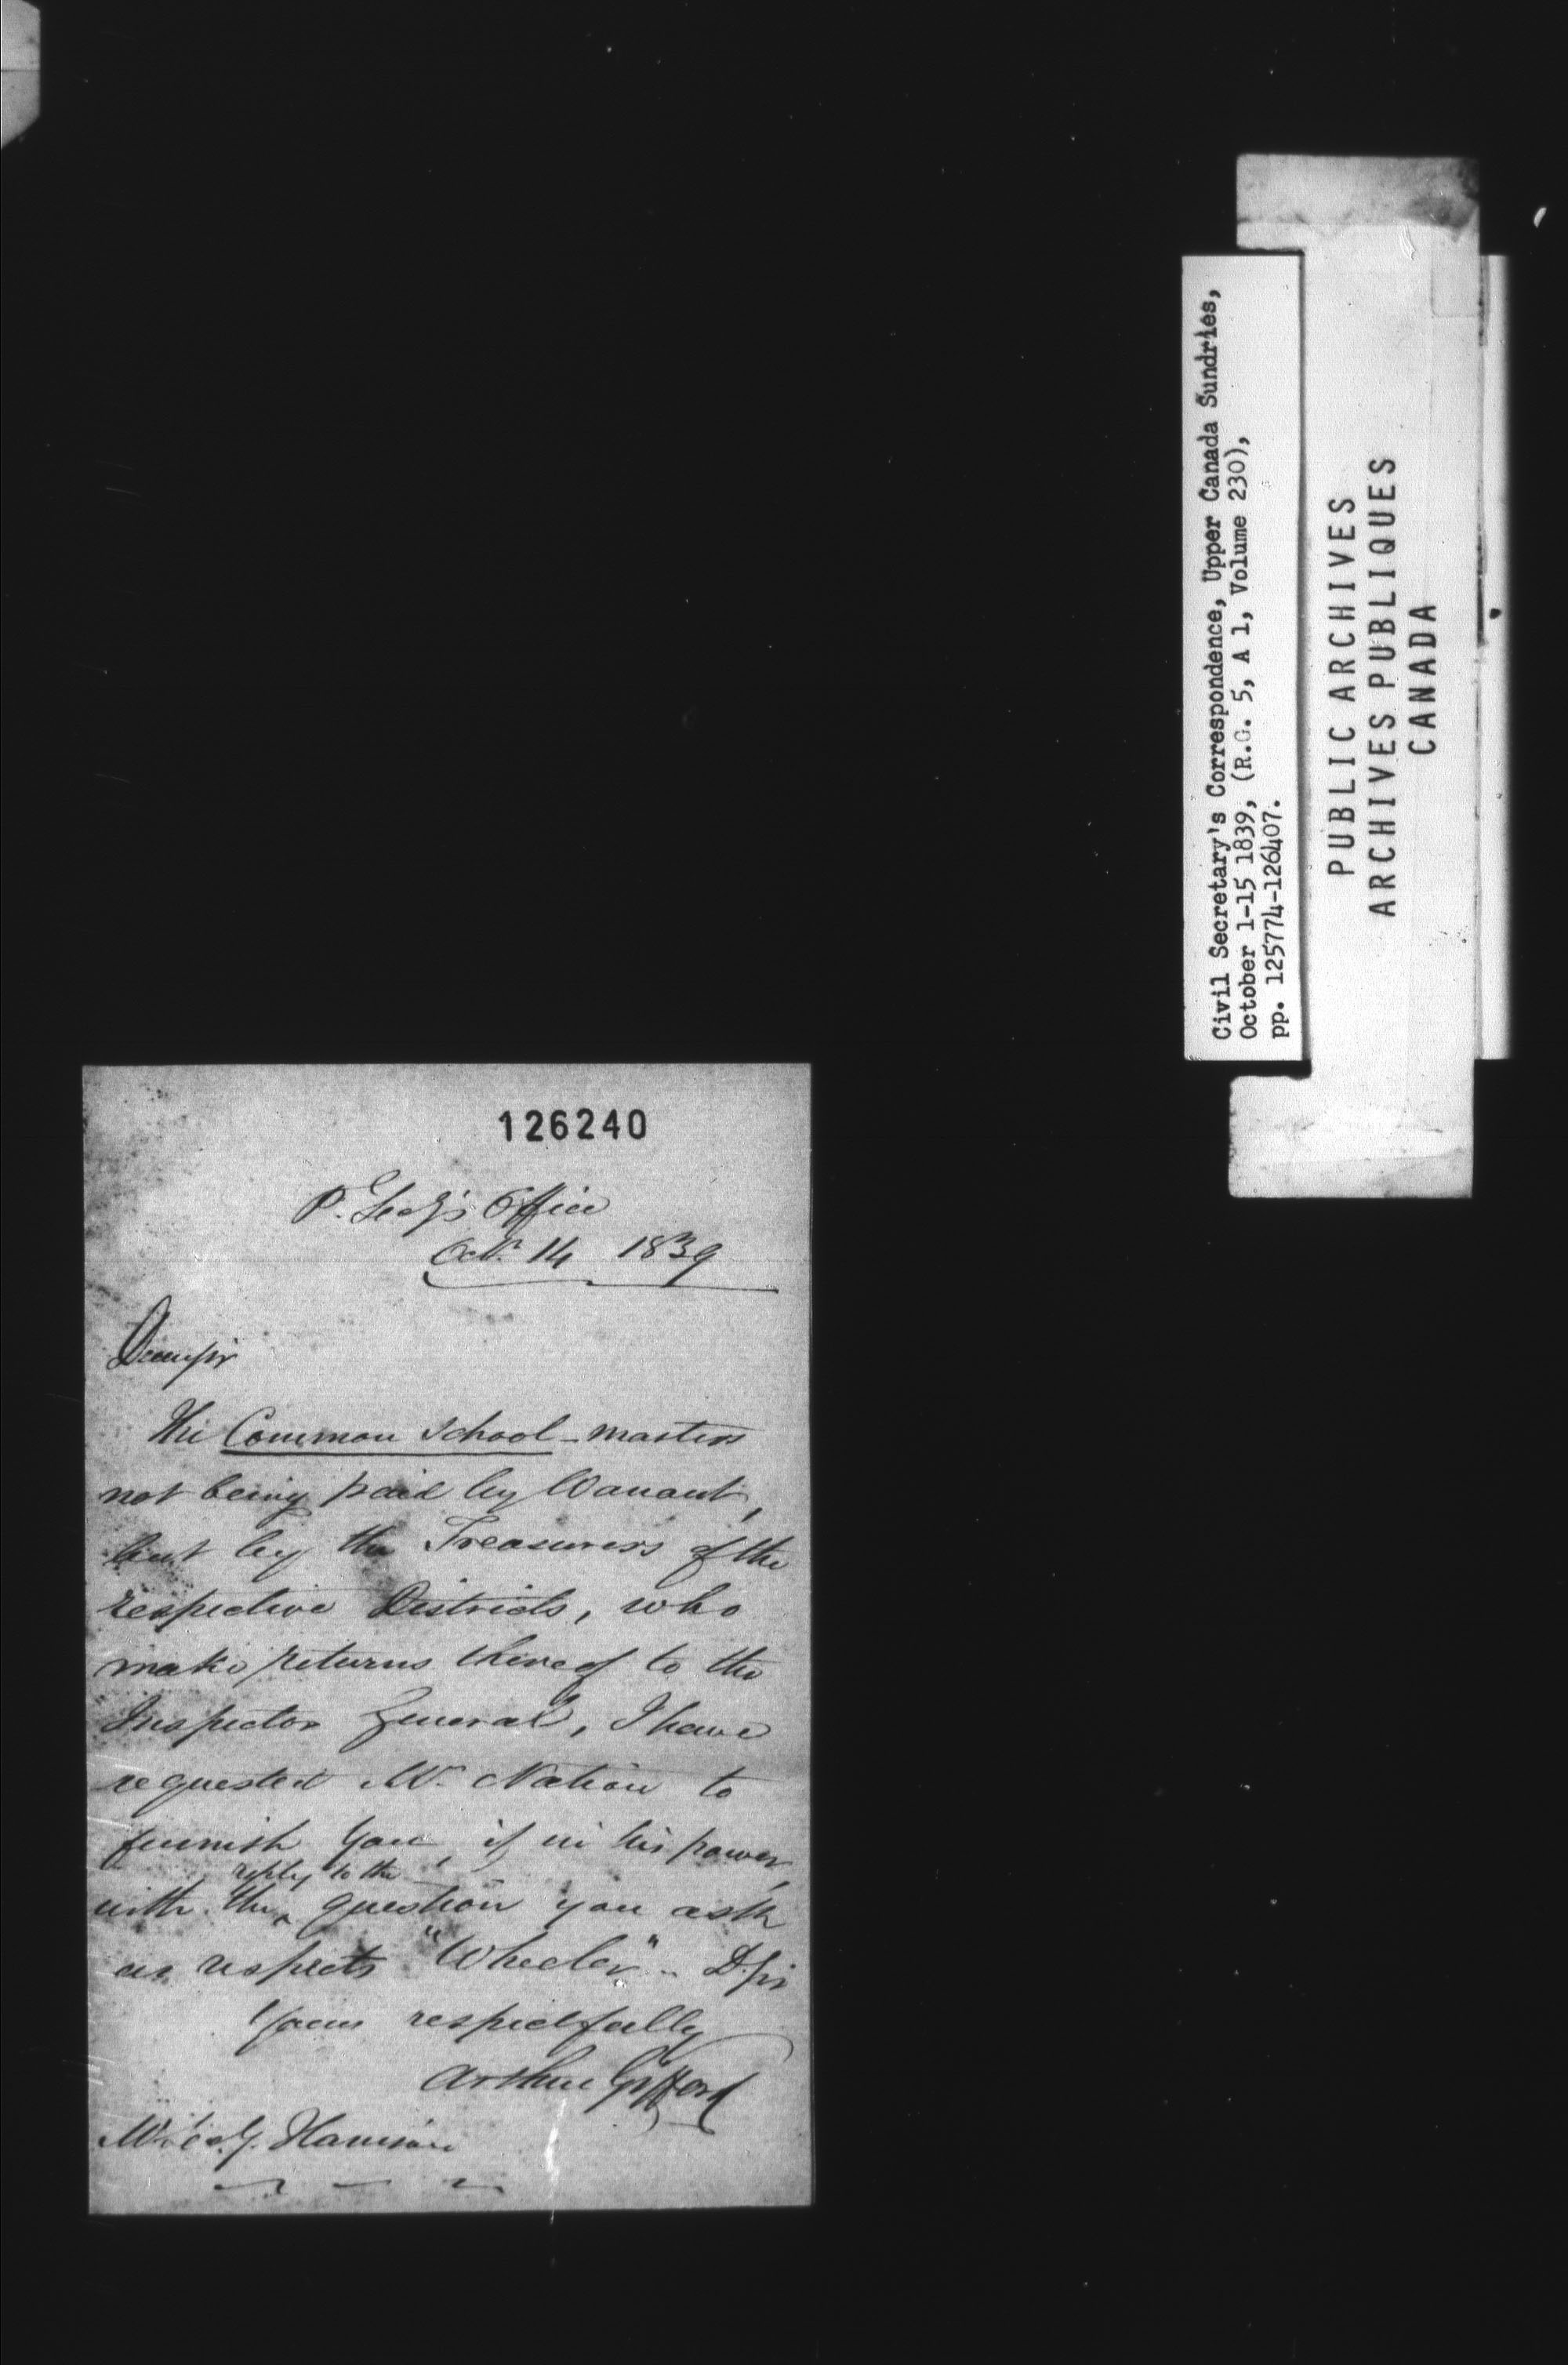 126240
P. Secy's Office
Octr. 14 1839
Dear Sir
The Common School-masters
not being paid by Warrant,
but by the Treasurers of the
respective Districts, who
make returns thereof to the
Inspector General, I have
requested Mr. Nation to
furnish you, if in his power,
reply to the
with the ^ question you ask
as respects "Wheeler" - D. Sir
Yours respectfully
Arthur Gifford
Harrison
Civil Secretary's Correspondence, Upper Canada Sundries,
October 1-15 1839, (R.G. 5, A 1, Volume 230),
pp. 125774-126407.
PUBLIC ARCHIVES
ARCHIVES PUBLIQUES
CANADA